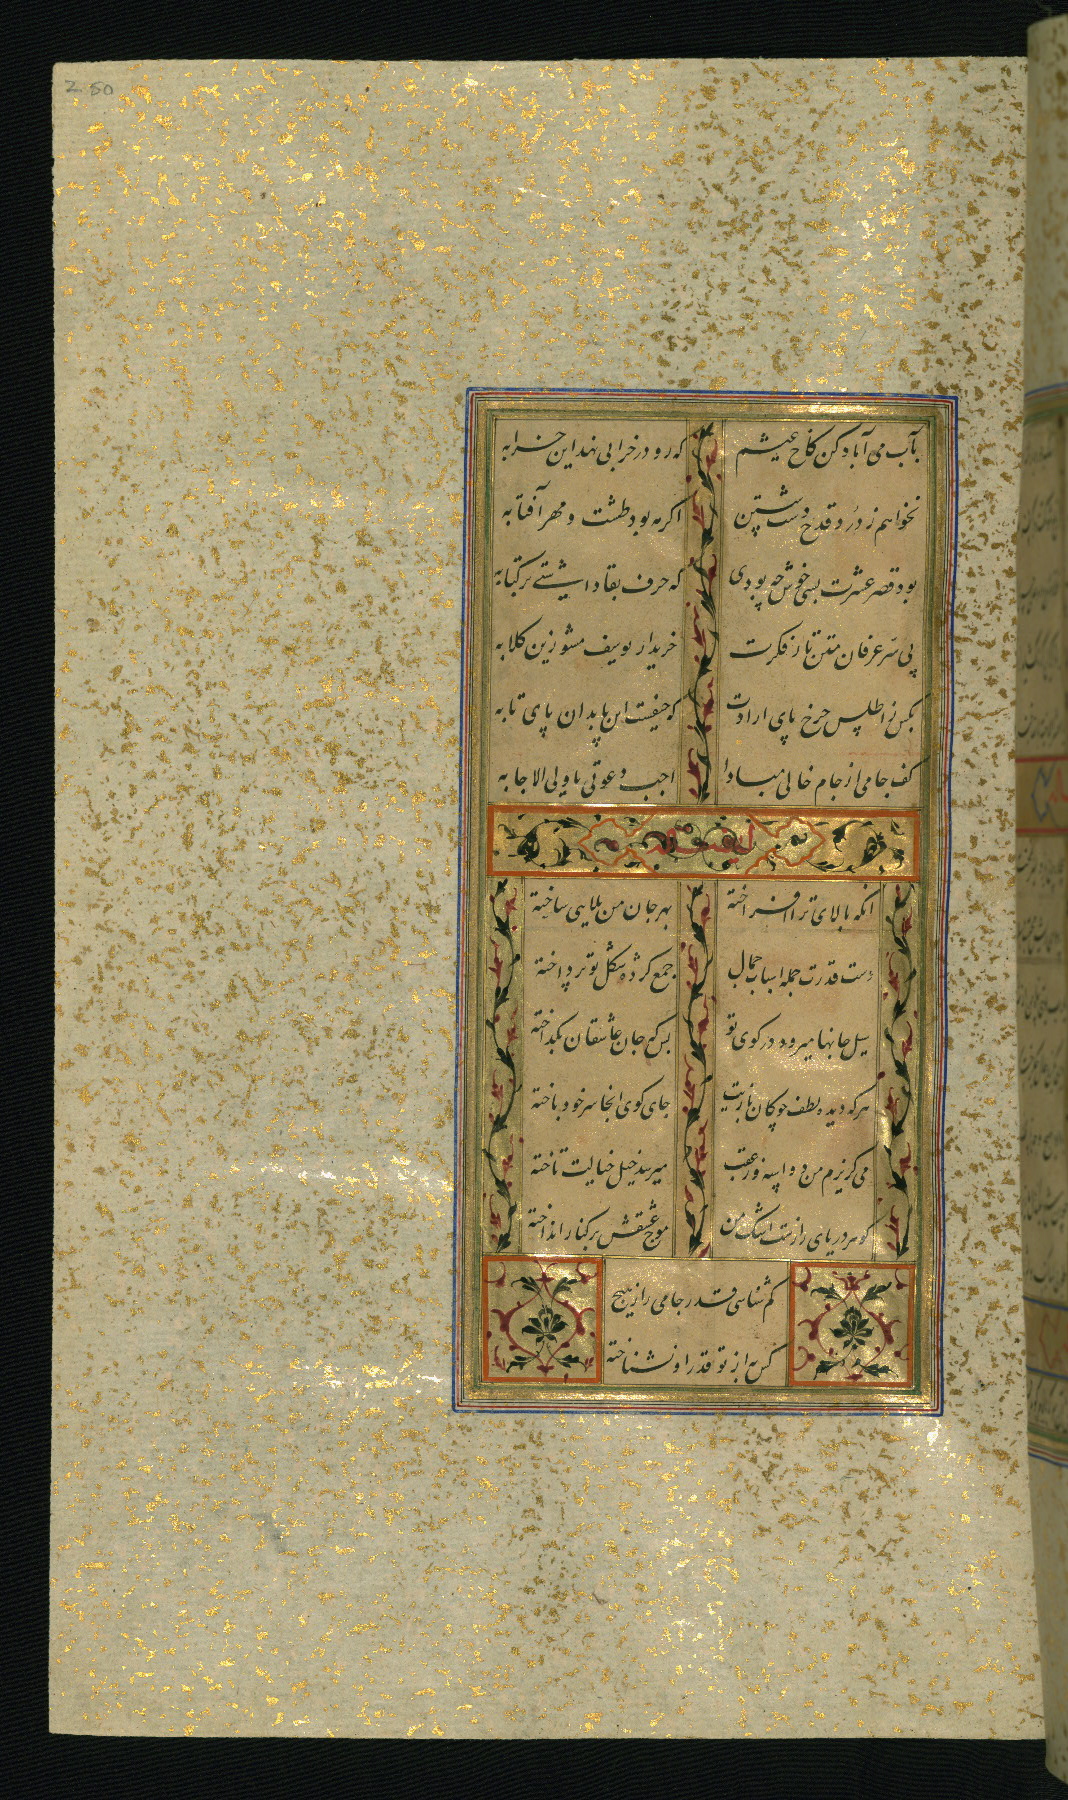 250
بآب می آباد کن کاخ عیشم که رو در خرابی نهد این خرابه
نخواهم ز دُرد قدح دست شستن اگر مه بود طشت و مهر آفتابه
بود قصر عشرت بسی خوش چه بودی که حرف بقا داشتی بر کتابه
پی سرّ عرفان متن تار فکرت خریدار یوسف مشو زین کلابه
مکن اطلس چرخ پای ارادت که حیفست این پا بدان پای تابه
کف جامی از جام خالی مبادا اجب دعوتی یا ولی الاجابه
آنکه بالای ترا افراخته بهر جان من بلایی ساخته
دست قدرت جمله اسباب جمال جمع کرده شکل تو پرداخته
سیل جانها میرود در کوی تو بس که جان عاشقان بگداخته
هرکه دیده لطف چوکان بازیت جای کوی آنجا سر خود باخته
می گریزم من ده اسپه وز عقب میرسد خیل خیالت تاخته
گوهر دریای رازست اشک من موج عشقش بر کنار انداخته
کم شناسی قدر جامی را ز هیچ
گر به از تو قدر او نشناخته